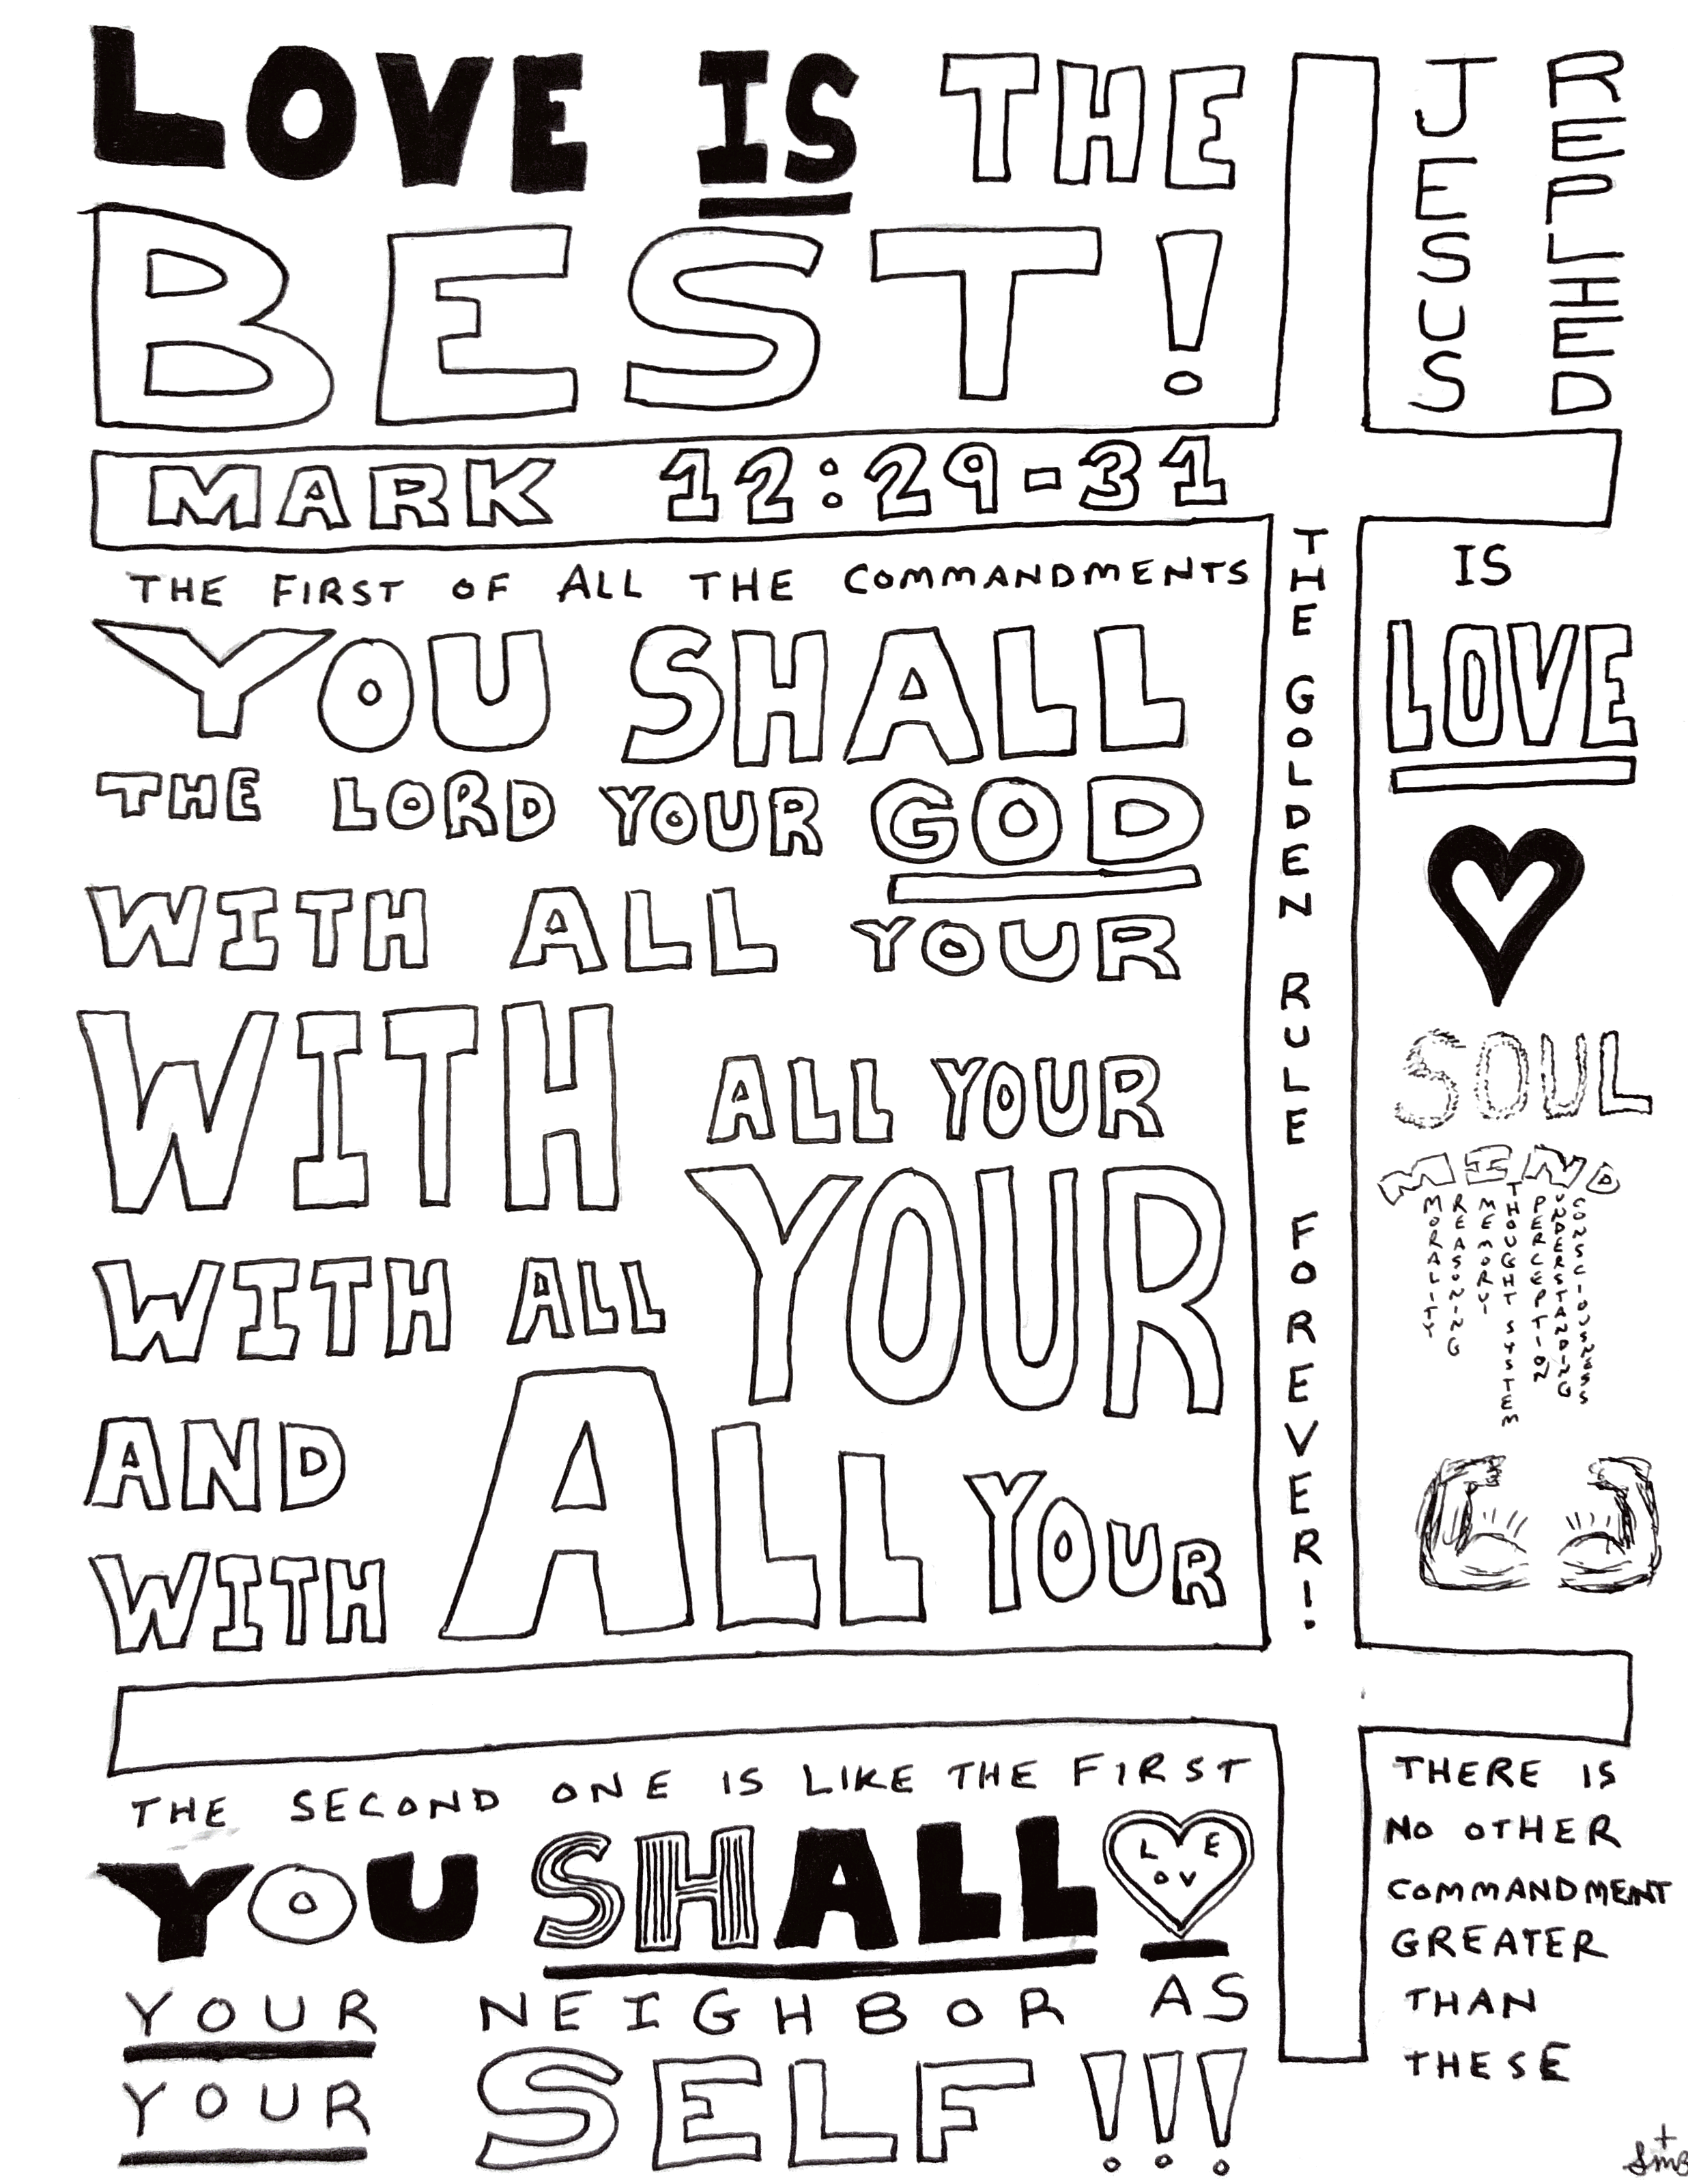 LOVE IS THE
BEST!
JESUS
REPLIED
MARK 12:29-31
THE FIRST OF ALL THE COMMANDMENTS
IS
YOU SHALL
LOVE
THE LORD YOUR GOD
WITH ALL YOUR
WITH ALL YOUR
SOUL
WITH ALL YOUR
MIND
MORALITY
REASONING
MEMORY
THOUGHT SYSTEM
PERCEPTION
UNDERSTANDING
CONSCIOUSNESS
AND
WITH ALL YOUR
THE GOLDEN RULE FOREVER!
THE SECOND ONE IS LIKE THE FIRST
YOU SHALL LOVE
YOUR NEIGHBOR AS
YOUR SELF!!!
THERE IS
NO OTHER
COMMANDMENT
GREATER
THAN
THESE